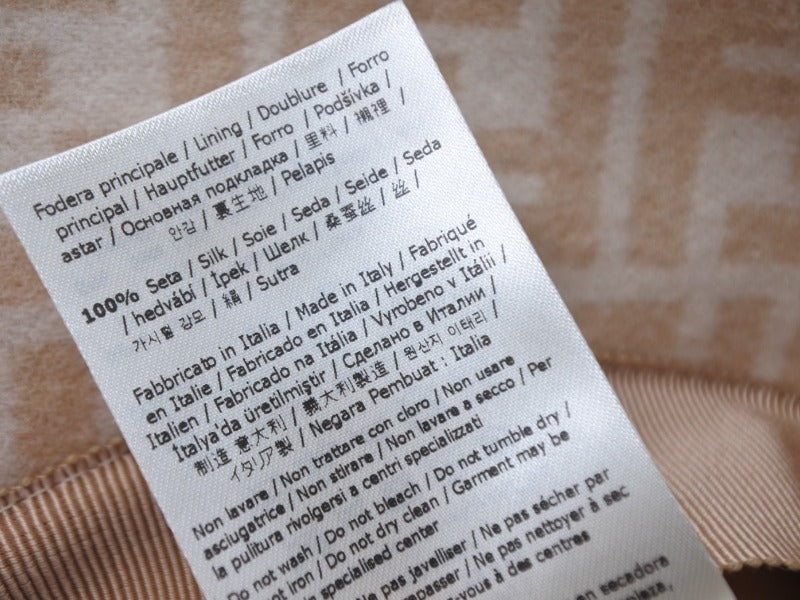 Fodera principale / Lining / Doublure / Forro
principal / Hauptfutter / Forro / Podšívka /
astar / Основная подкладка / 里料 / 襯裡 /
안감 / 裏生地 / Pelapis
100% Seta / Silk / Soie / Seda / Seide / Seda
/ hedvábí / İpek / Шелк / 桑蚕丝 / 丝 /
가시훨 감모 / 絹 / Sutra
Fabbricato in Italia / Made in Italy / Fabriqué
en Italie / Fabricado en Italia / Hergestellt in
Italien / Fabricado na Itália / Vyrobeno v Itálii /
İtalya'da üretilmiştir / Сделано в Италии /
制造 意大利 / 義大利製造 / 원산지 이태리 /
イタリア製 / Negara Pembuat : Italia
Non lavare / Non trattare con cloro / Non usare
asciugatrice / Non stirare / Non lavare a secco / Per
la pulitura rivolgersi a centri specializzati
Do not wash / Do not bleach / Do not tumble dry /
not iron / Do not dry clean / Garment may be
specialised center
Ne pas javelliser / Ne pas sécher par
repasser / Ne pas nettoyer à sec
-vous à des centres
en secadora